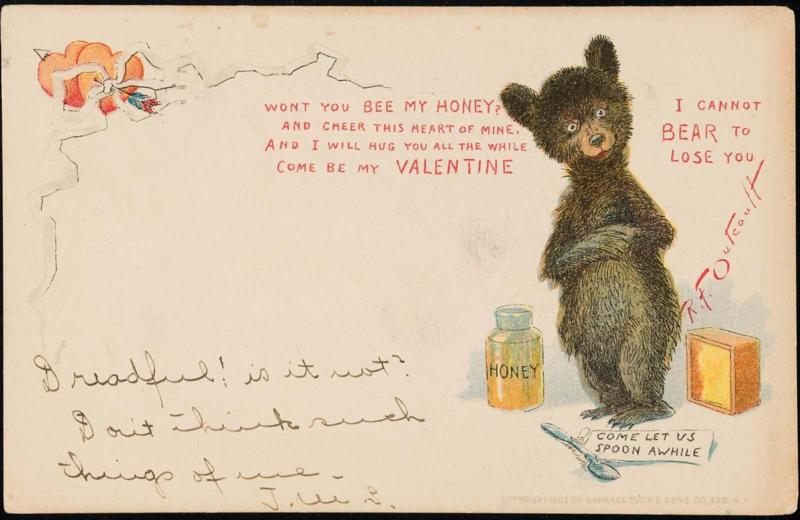 WONT YOU BEE MY HONEY?
AND CHEER THIS HEART OF MINE,
AND I WILL HUG YOU ALL THE WHILE
COME BE MY VALENTINE
I CANNOT
BEAR TO
LOSE YOU
R.F. Outcault
HONEY
COME LET US
SPOON AWHILE
Dreadful! is it not?
Don't think such
things of me.
COPYRIGHT 1907 BY RAPHAEL TUCK & SONS CO. LTD. N.Y.